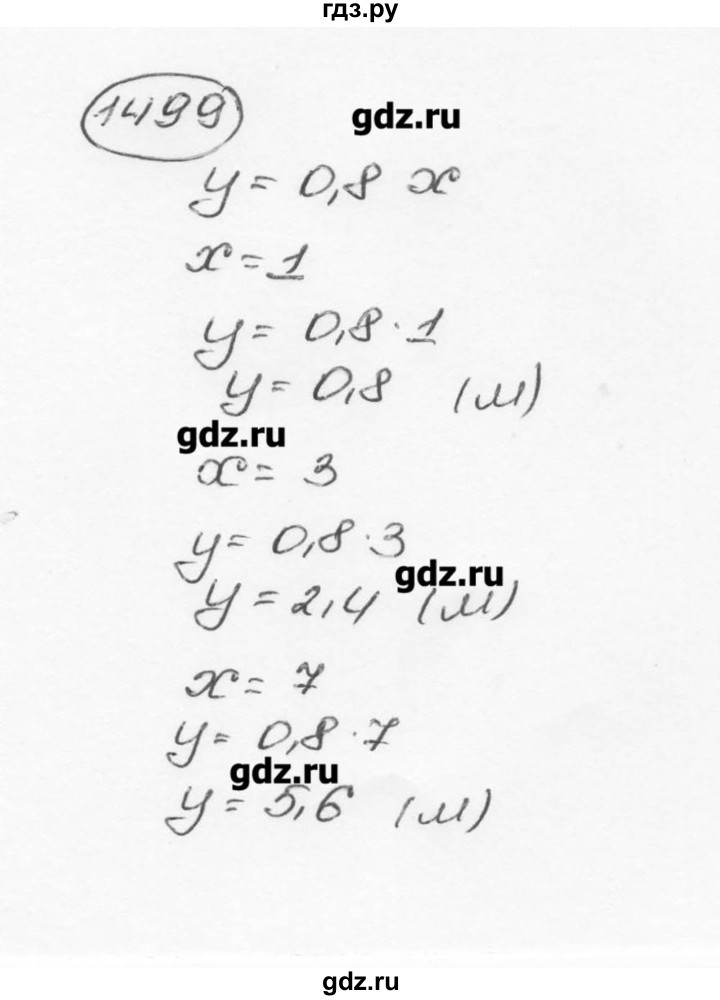 гдз.ру
1499
gdz.ru
y = 0,8 x
x = 1
y = 0,8 · 1
y = 0,8 (м)
gdz.ru
x = 3
y = 0,8 · 3
gdz.ru
y = 2,4 (м)
x = 7
y = 0,8 · 7
gdz.ru
y = 5,6 (м)
gdz.ru